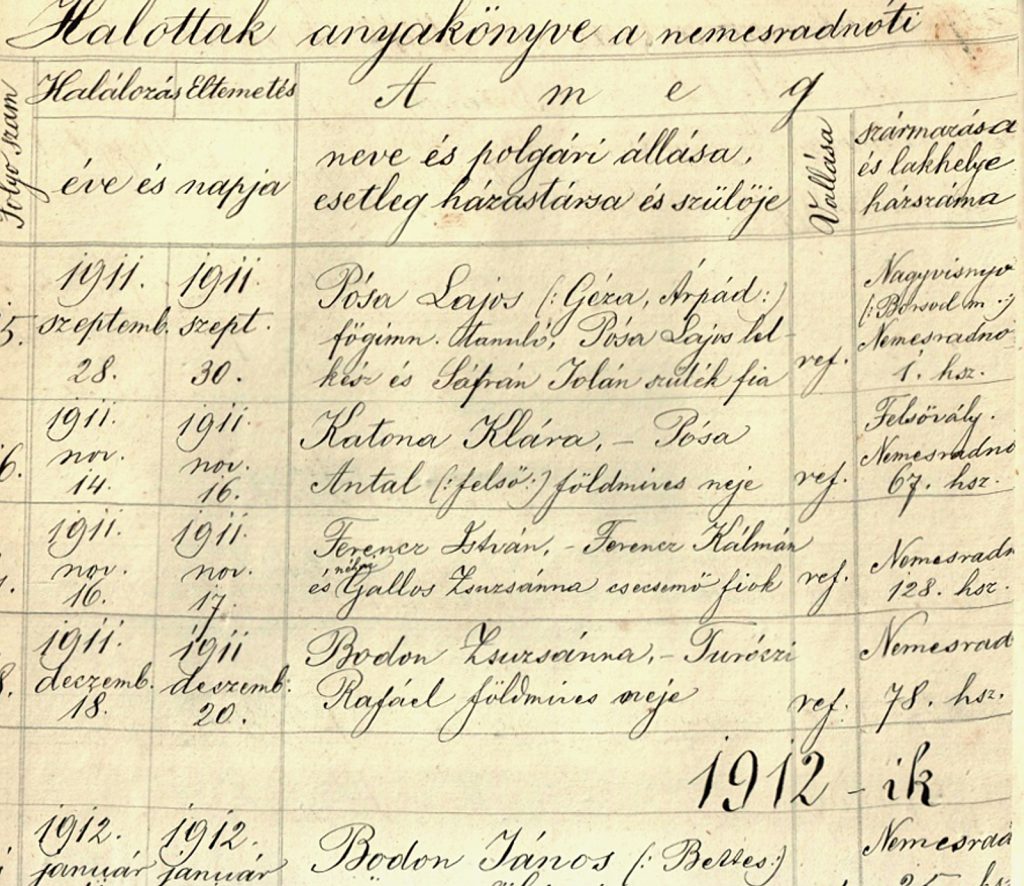 Halottak anyakönyve a nemesradnóti
Folyó szám
Halálozás Eltemetés
éve és napja
A m e g
neve és polgári állása,
esetleg házastársa és szülöje
Vallása
származása
és lakhelye
házszáma
5.
1911.
szeptemb.
28.
1911.
szept.
30.
Pósa Lajos (: Géza, Árpád :)
fögimn. tanuló, Pósa Lajos lel-
kész és Sáfrán Jolán szülék fia
ref.
Nagyvisnyó
(: Borsod m. :)
Nemesradnó
1. hsz.
6.
1911.
nov.
14.
1911.
nov.
16.
Katona Klára, – Pósa
Antal (: felső :) földmíves neje
ref.
Felsővály.
Nemesradnó
67. hsz.
1911.
nov.
16.
1911.
nov.
17.
Ferencz István, – Ferencz Kálmán
és néhai Gallos Zsuzsánna csecsemő fiok
ref.
Nemesradn
128. hsz.
8.
1911.
deczemb.
18.
1911
deczemb.
20.
Bodon Zsuzsánna, – Turóczi
Rafáel földmíves neje
ref.
Nemesrad
78. hsz.
1912 - ik
1912.
január
1912.
január
Bodon János (: Bettes :)
Nemesrad